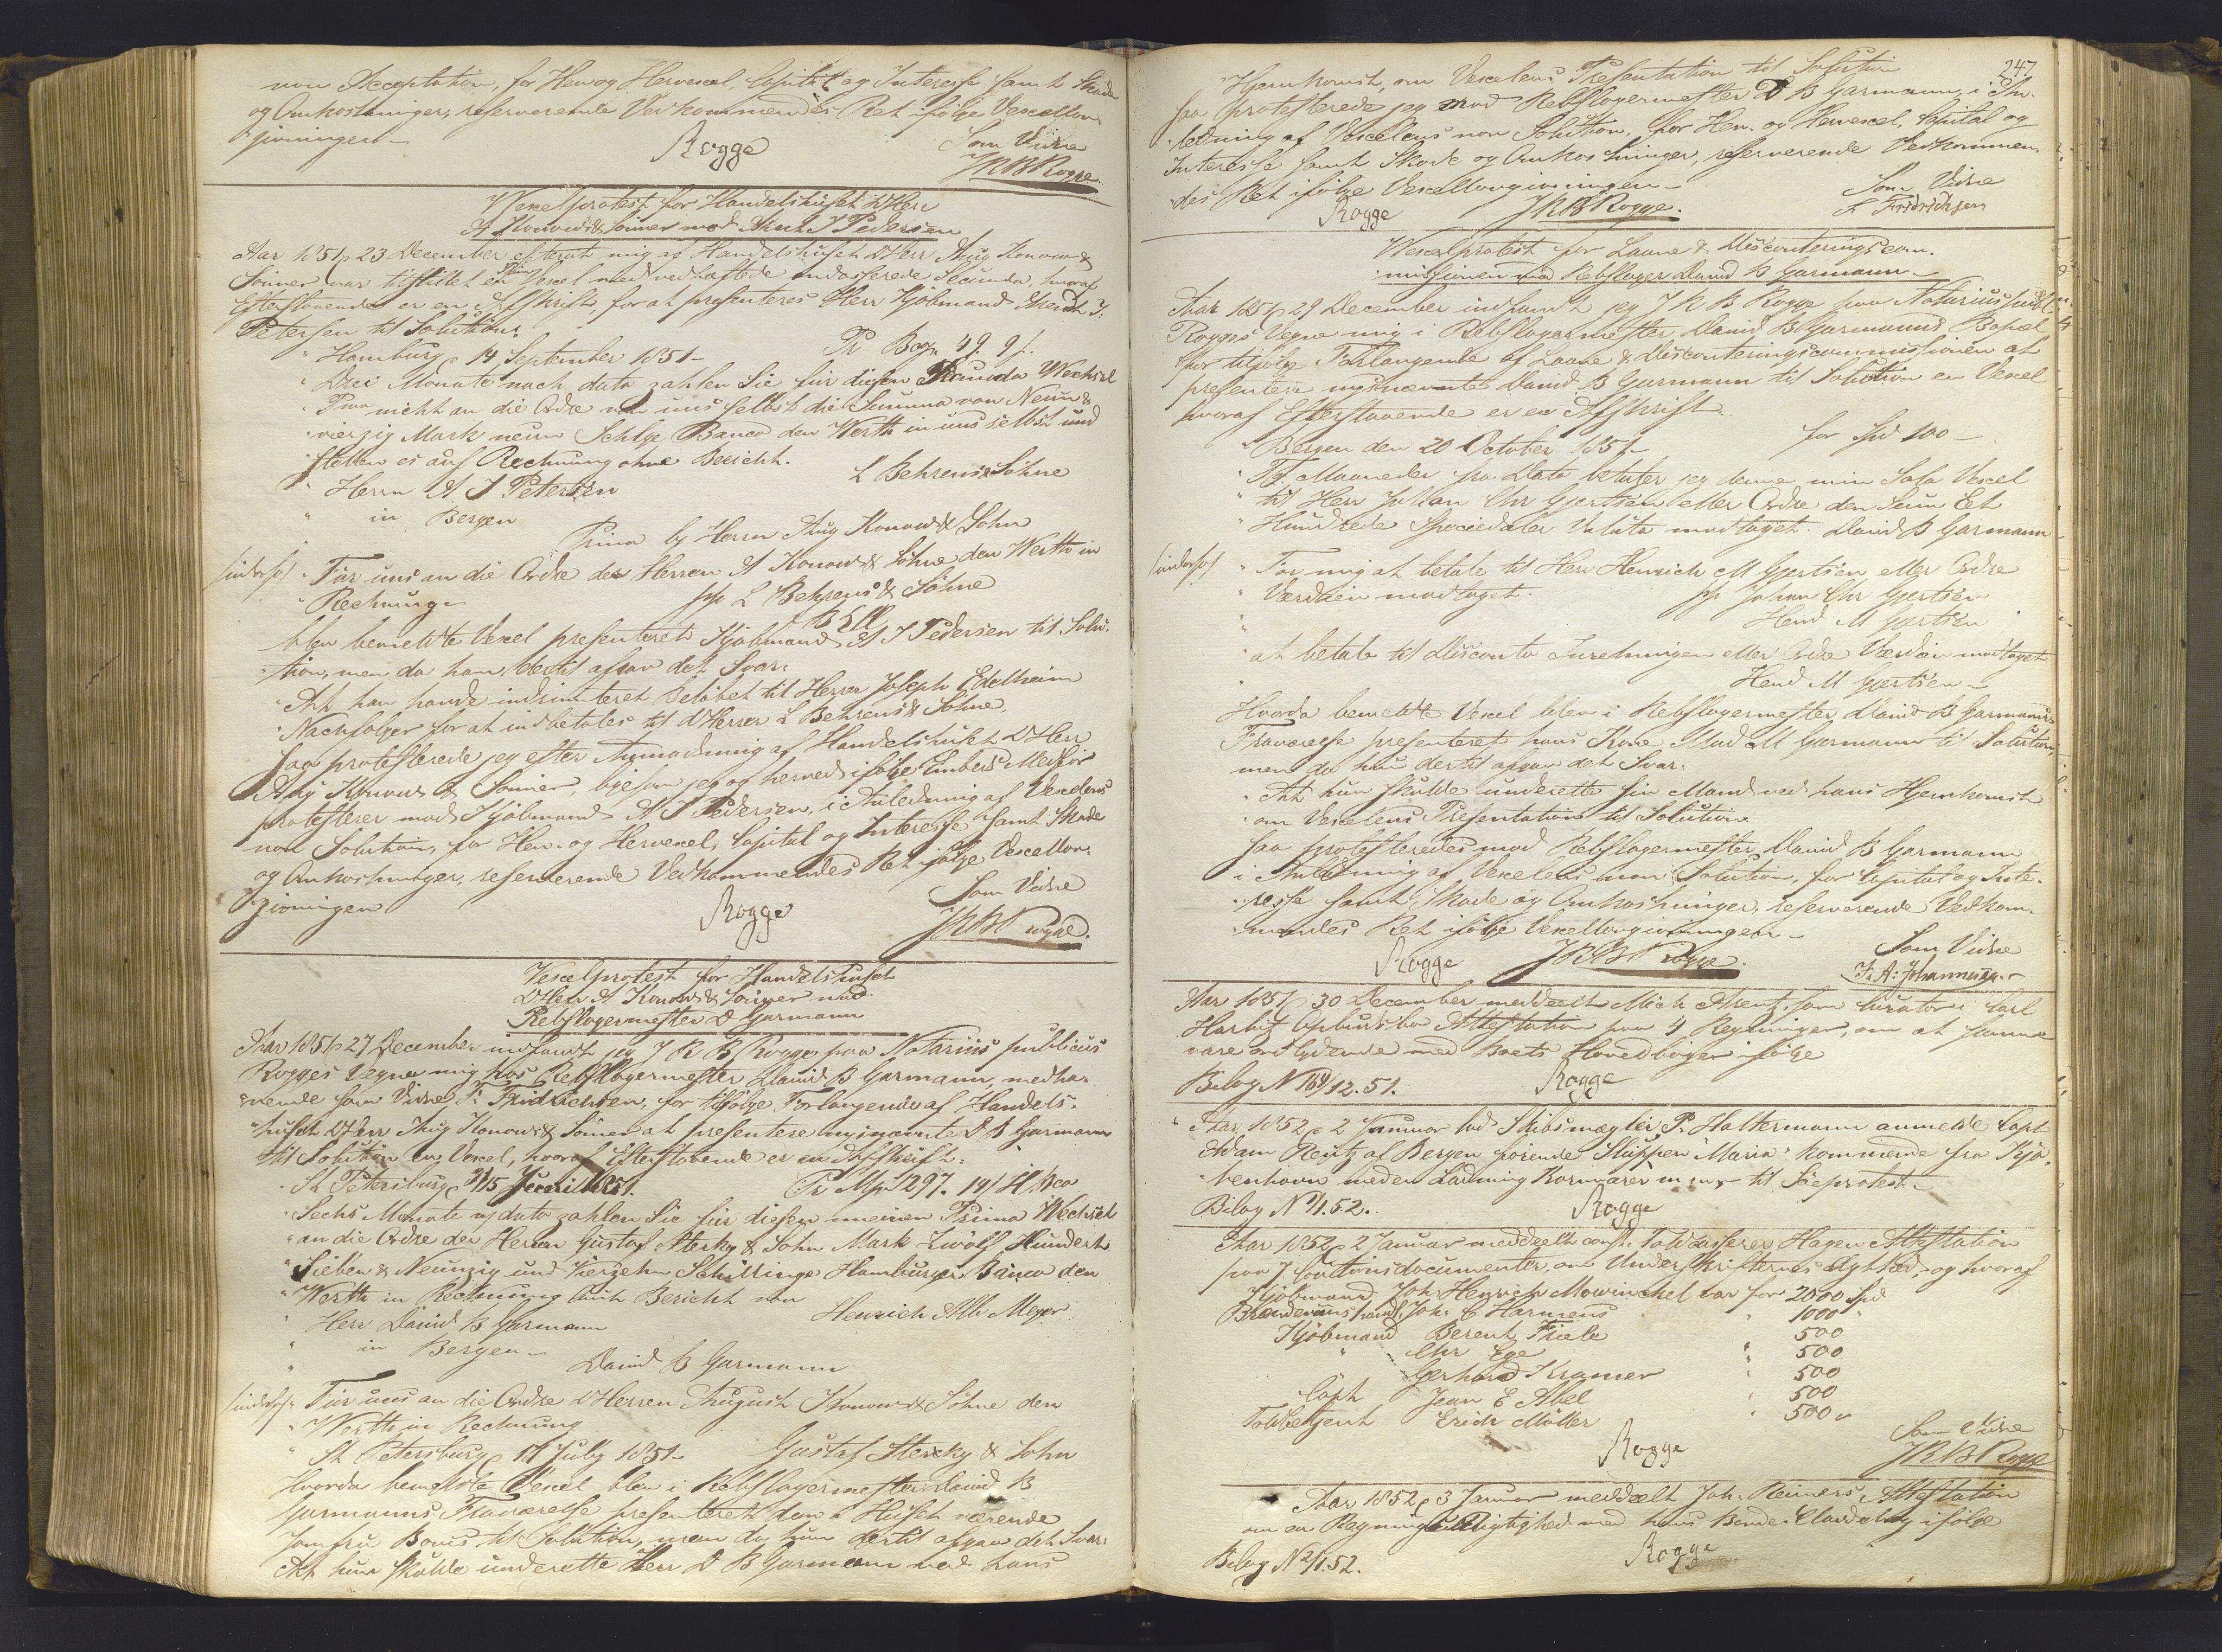 non Acceptation, for Hen og Hervexel, Capital og Interesse samt Skade
og Omkostninger, reserverende Vedkommendes Ret ifölge Vexellov-
givningen
Rogge
Som Vidne
J R B Rogge
Vexelprotest for Handelshuset DHerr
A Konow & Sönner mod Arent J Pedersen
Aar 1851 p 23 December efterat mig af Handelshuset DHerr Aug Konow &
Sönner var tilstillet en Prima Vexel med vedhæftede endosserede Secunda, hvoraf
Efterstaaende er en Afskrift, for at presenteres Herr Kjöbmand Arent J:
Petersen til Solution:
" Hamburg p 14 September 1851 –
Pr Bco 49. 9 f.
" Drei Monate nach dato zahlen Sie für diesen Secunda Wechsel
" Pma nicht an die Ordre von uns selbst die Summa von Neun &
" vierzig Mark neun Schlge Banco den Werth in uns selbst und
" stellen es auf Rechnung ohne Bericht.
L Behrens & Söhne
" Herrn A J Petersen
" in Bergen
" Prima by Herrn Aug Konow & Sohn
/indorso/ " Für uns an die Ordre der Herren A Konow & Söhne den Werth in
" Rechnung –
pp L Behrens & Söhne
blev bemeldte Vexel presenteret Kjöbmand A J Pedersen til Solu-
tion, men da han dertil afgav det Svar:
" At han havde indrimteret Belöbet til Herrer Joseph Edelheim
" Nachfolger for at indbetales til DHerrer L Behrens & Söhne.
saa protesterede jeg efter Anmodning af Handelshuset DHerr
Aug Konow & Sönner, ligesom jeg og herved ifölge Embeds Medför
protesterer mod Kjöbmand A J Pedersen, i Anledning af Vexelens
non Solution, for Hen- og Hervexel, Capital og Interesse samt Skade
og Omkostninger, reserverende Vedkommendes Ret ifölge Vexellov-
givningen
Rogge
Som Vidne
J R B Rogge.
Vexelprotest for Handelshuset
DHerr A Konow & Sönner mod
Rebslagermester D Garmann
Aar 1851 p 27 December indfandt jeg J R B Rogge paa Notarius publicus
Rogges Vegne mig hos Rebslagermester David B Garmann, medha-
vende som Vidne F. Fridrichsen, for tilfölge Forlangende af Handels-
huset DHerr Aug Konow & Sönner at presentere mijsnævnte D B Garmann
til Solution en Vexel, hvoraf Efterstaaende er en Afskrift:
" St Petersburg 3/15 Juni 1851.
Pr Mf 1297. 14 / H Bco
" Sechs Monate af dato zahlen Sie für diesen meinen Prima Wechsel
" an die Ordre der Herren Gustaf Sterky & Sohn Mark Zwölf Hundert
" Sieben & Neunzig und Vierzehn Schillinge Hamburger Banco den
" Werth in Rechnung laut Bericht von
Henrich Alb Meyer
" Herr David B Garmann
" in Bergen –
" David B Garmann
/indorso/ " Für uns an die Ordre DHerren August Konow & Söhne den
" Werth in Rechnung
" St Petersburg p 11 July 1851 – Gustaf Sterky & Sohn
Hvorda bemeldte Vexel blev i Rebslagermester David B
Garmanns Fraværelse presenteret den i Huset værende
Jomfru Boms til Solution, men da hun dertil afgav det Svar:
At hun skulde underette Herr D B Garmann ved hans
247
" Hjemkomst, om Vexelens Presentation til Solution
saa protesterede jeg mod Rebslagermester D B Garmann, i An-
ledning af Vexelens non Solution, for Hen- og Hervexel, Capital og
Interesse samt Skade og Omkostninger, reserverende Vedkommen-
des Ret ifölge Vexellovgivningen –
Rogge
J R B Rogge.
Som Vidne
F Fridrichsen
Vexelprotest for Laane & Disconteringscom-
missionen mod Rebslager David B Garmann –
Aar 1851 p 29 December indfandt jeg J R B Rogge paa Notarius publicus
Rogges Vegne mig i Rebslagermester David B Garmanns Bopæl
for tilfölge Forlangende af Laane & Disconteringscommissionen at
presentere mijsnævnte David B Garmann til Solution en Vexel
hvoraf Efterstaaende er en Afskrift
" Bergen den 20 October 1851 –
for Spd 100 –
" To Maaneder fra Dato betaler jeg denne min Sola Vexel
" til Herr Johan Chr Gjertsen eller Ordre den Sum Et
" Hundrede Speciedaler Valuta modtaget. David B Garmann
/indorso/ " For mig at betale til Herr Henrich M Gjertsen eller Ordre
" Værdien modtaget.
pp Johan Chr Gjertsen
" Hend M Gjertsen
" at betale til Disconto Inretningen eller Ordre Værdien modtaget
" Hend M Gjertsen –
Hvorda bemeldte Vexel blev i Rebslagermester David B Garmanns
Fraværelse presenteret hans Kone Mad M Garmann til Solution,
men da hun dertil afgav det Svar:
" At hun skulde underette sin Mand ved hans Hjemkomst
" om Vexelens Presentation til Solution
saa protesteredes mod Rebslagermester David B Garmann
i Anledning af Vexelens non Solution, for Capital og Inte-
resse samt Skade og Omkostninger, reserverende Vedkom-
mendes Ret ifölge Vexellovgivningen –
Rogge
J R B Rogge.
Som Vidne
F. A: Johannesen
Aar 1851 p 30 December meddeelt Mich Arentz som Curator i Carl
Harbitz Opbudsbo Attestation paa 4 Regninger, om at samme
vare ordlydende med Boets Hovedböger ifölge
Bilag N 164/12. 51.
Rogge
" Aar 1852 p 2 Januar lod Skibsmægler P. Haltermann anmelde Capt
Adam Rentz af Bergen förende Sluppen "Maria" kommende fra Kjö-
benhavn med en Ladning Kornvarer m m, til Söeprotest.
Bilag N 1/1. 52.
Rogge
Aar 1852 p 2 Januar meddeelt const. Toldcasserer Hagen Attestation
paa 7 Cautionsdocumenter, om Underskrifternes Ægthed, og hvoraf
Kjöbmand Joh: Henrich Mowinckel var for 2000 Spd
Brændeviinshandl. Joh: C Harmens " 1000 "
Kjöbmand Berent Friele 500
" Chr Ege " 500
Gerhard Kramer " 500
Capt Jean E Abel " 500
Toldbetjent Erich Möller " 500 "
Rogge
Som Vidne
J R B Rogge
Aar 1852 p 3 Januar meddeelt Joh. Reimers Attestation
om en Regnings Rigtighed med hans Bonde-Claddebog ifölge
Bilag N 2/1. 52.
Rogge